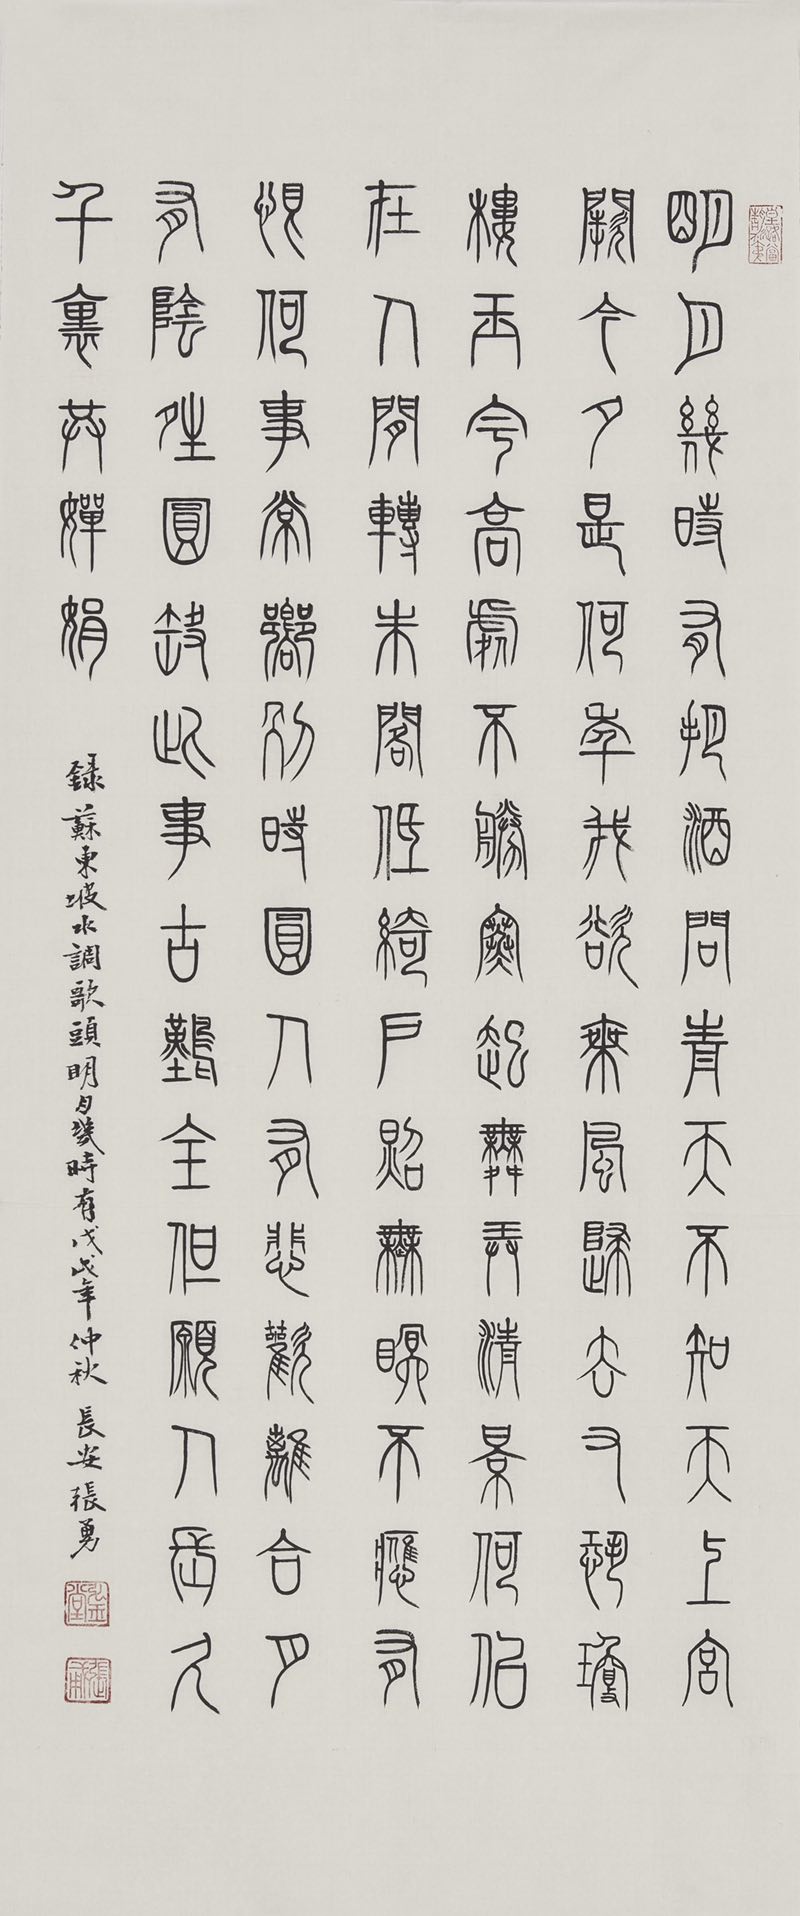 明月幾時有把酒問青天不知天上宮
闕今夕是何年我欲乘風歸去又恐瓊
樓玉宇高處不勝寒起舞弄清景何佀
在人間轉朱閣低綺戶照無眠不應有
恨何事常嚮別時圓人有悲歡離合月
有陰晴圓缺此事古難全但願人長久
千裏共嬋娟
錄蘇東坡水調歌頭明月幾時有戊戌年仲秋長安張勇
張勇